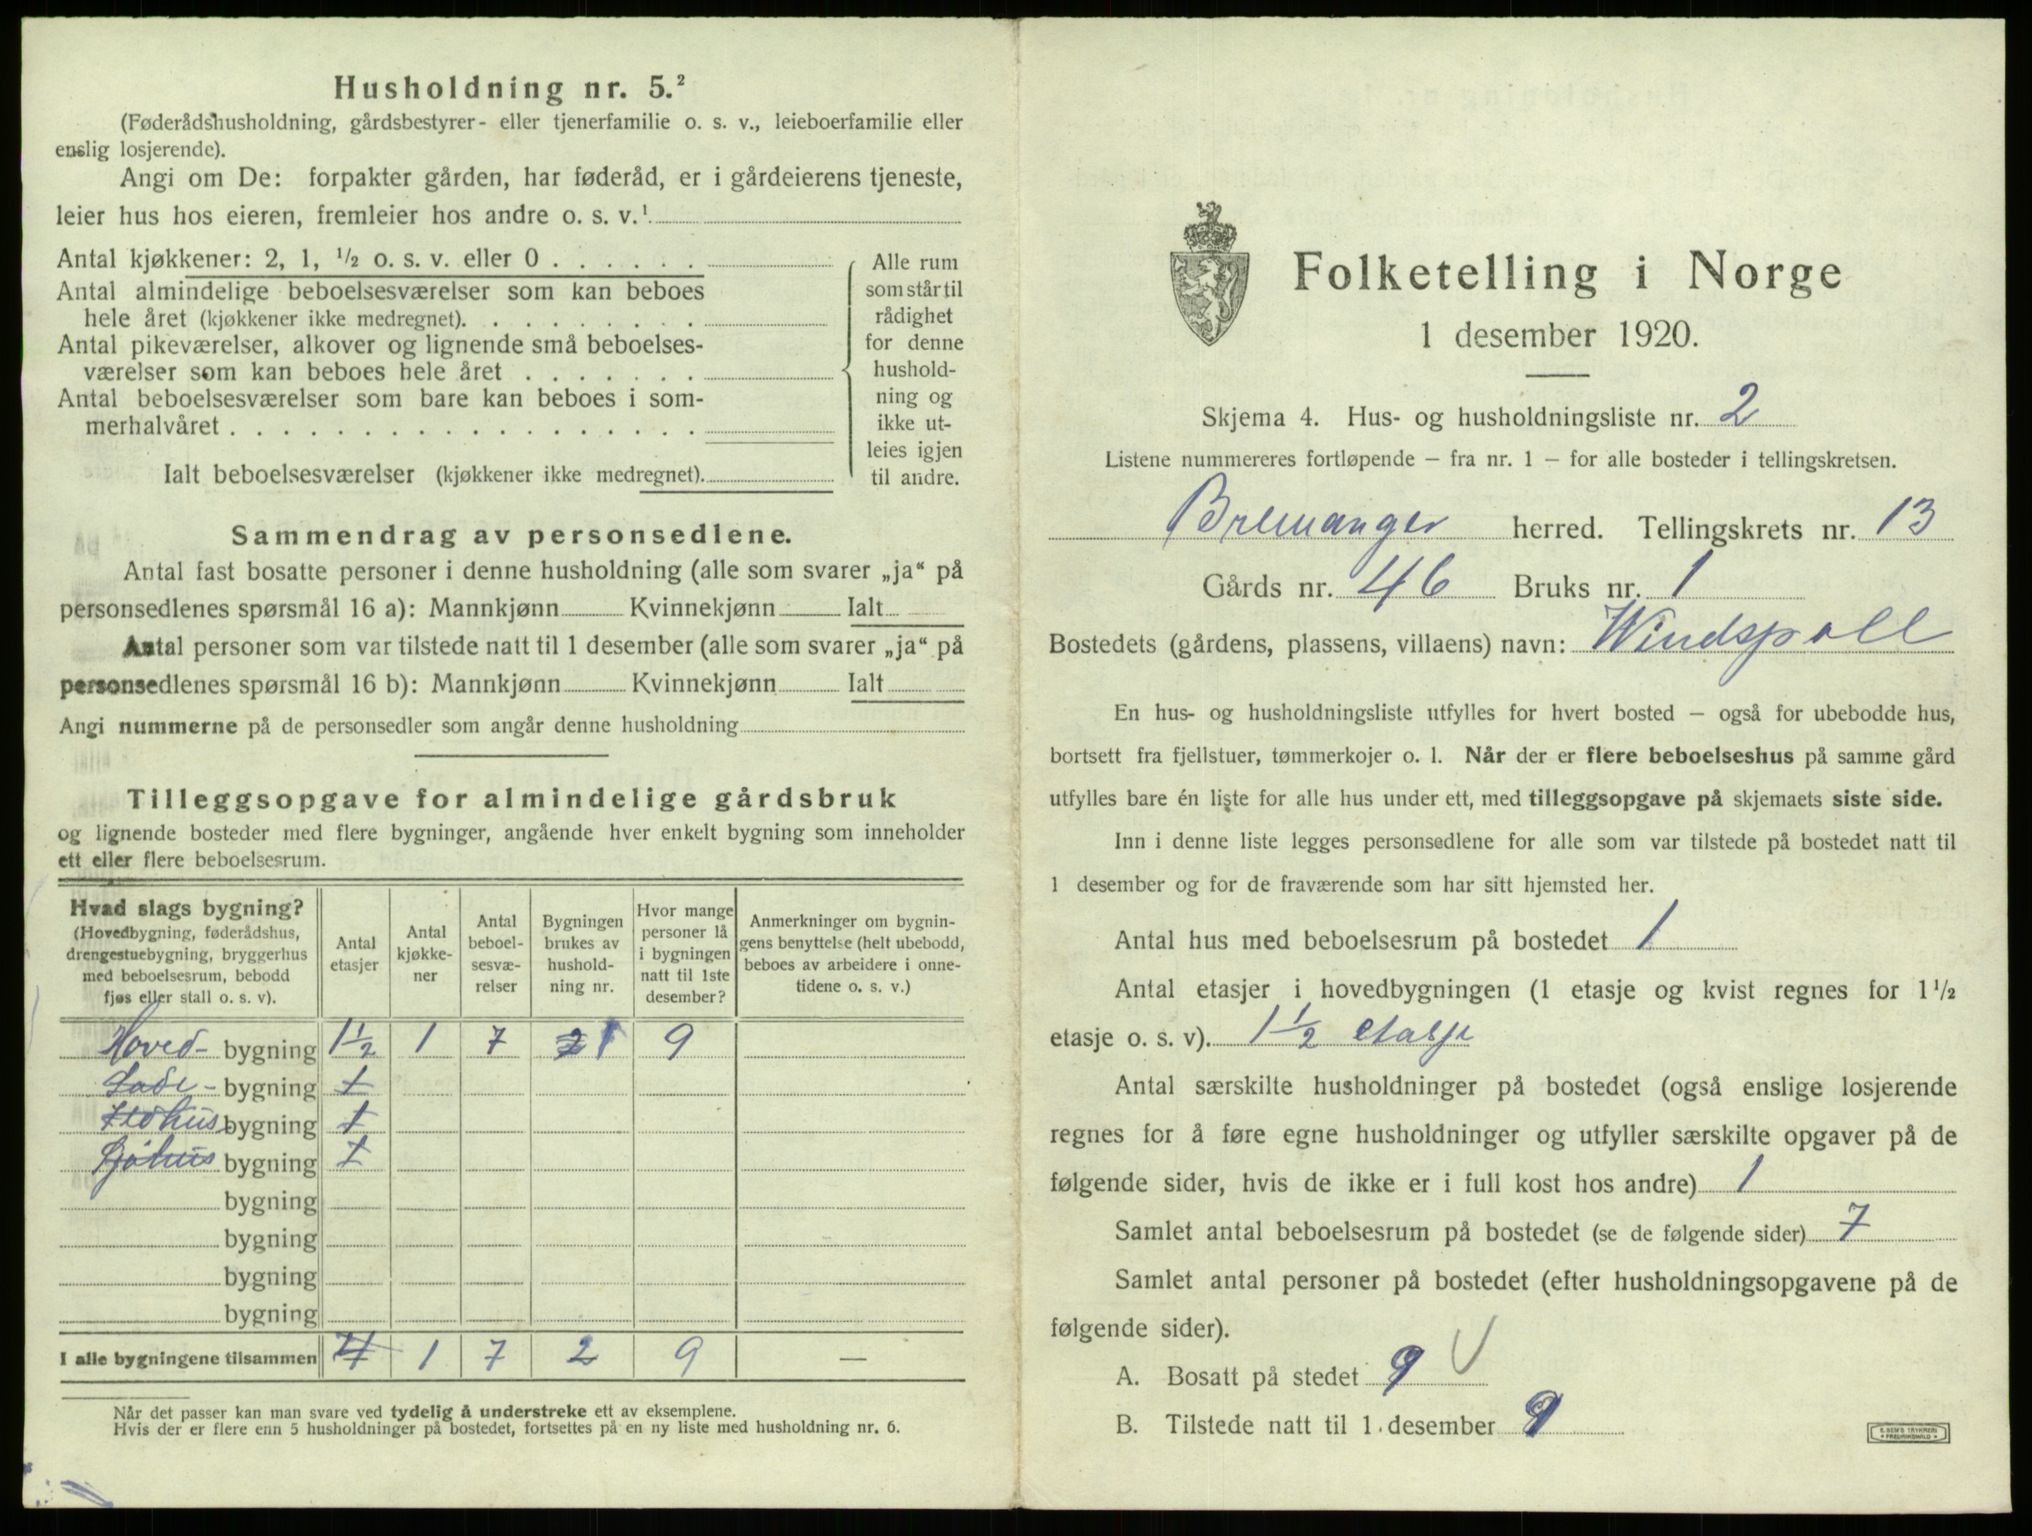 Husholdning nr. 5.²
(Føderådshusholdning, gårdsbestyrer- eller tjenerfamilie o. s. v., leieboerfamilie eller
enslig losjerende).
Angi om De: forpakter gården, har føderåd, er i gårdeierens tjeneste,
leier hus hos eieren, fremleier hos andre o. s. v.¹
Antal kjøkkener: 2, 1, ½ o. s. v. eller 0
Antal almindelige beboelsesværelser som kan beboes
hele året (kjøkkener ikke medregnet).
Antal pikeværelser, alkover og lignende små beboelses-
værelser som kan beboes hele året
Antal beboelsesværelser som bare kan beboes i som-
merhalvåret
Ialt beboelsesværelser (kjøkkener ikke medregnet).
Alle rum
som står til
rådighet
for denne
hushold-
ning og
ikke ut-
leies igjen
til andre.
Sammendrag av personsedlene.
Antal fast bosatte personer i denne husholdning (alle som svarer „ja“ på
personsedlenes spørsmål 16 a): Mannkjønn Kvinnekjønn Ialt
Antal personer som var tilstede natt til 1 desember (alle som svarer „ja“ på
personsedlenes spørsmål 16 b): Mannkjønn Kvinnekjønn Ialt
Angi nummerne på de personsedler som angår denne husholdning
Tilleggsopgave for almindelige gårdsbruk
og lignende bosteder med flere bygninger, angående hver enkelt bygning som inneholder
ett eller flere beboelsesrum.
Hvad slags bygning?
(Hovedbygning, føderådshus,
drengestuebygning, bryggerhus
med beboelsesrum, bebodd
fjøs eller stall o. s. v).
Antal
etasjer
Antal
kjøkke-
ner
Antal
beboel-
sesvæ-
relser
Bygningen
brukes av
hushold-
ning nr.
Hvor mange
personer lå
i bygningen
natt til 1ste
desember?
Anmerkninger om bygnin-
gens benyttelse (helt ubebodd,
beboes av arbeidere i onne-
tidene o. s. v.)
Hoved- bygning 1½ 1 7 2 1 9
Lade- bygning 1
Ildhus bygning 1
Fjøhus bygning 1
bygning
bygning
bygning
bygning
I alle bygningene tilsammen 4 1 7 2 9 —
Når det passer kan man svare ved tydelig å understreke ett av eksemplene.
Hvis der er flere enn 5 husholdninger på bostedet, fortsettes på en ny liste med husholdning nr. 6.
Folketelling i Norge
1 desember 1920.
Skjema 4. Hus- og husholdningsliste nr. 2
Listene nummereres fortløpende – fra nr. 1 – for alle bosteder i tellingskretsen.
Bremanger herred. Tellingskrets nr. 13
Gårds nr. 46 Bruks nr. 1
Bostedets (gårdens, plassens, villaens) navn: Windspoll
En hus- og husholdningsliste utfylles for hvert bosted – også for ubebodde hus,
bortsett fra fjellstuer, tømmerkojer o. l. Når der er flere beboelseshus på samme gård
utfylles bare én liste for alle hus under ett, med tilleggsopgave på skjemaets siste side.
Inn i denne liste legges personsedlene for alle som var tilstede på bostedet natt til
1 desember og for de fraværende som har sitt hjemsted her.
Antal hus med beboelsesrum på bostedet 1
Antal etasjer i hovedbygningen (1 etasje og kvist regnes for 1½
etasje o. s. v). 1½ etasje
Antal særskilte husholdninger på bostedet (også enslige losjerende
regnes for å føre egne husholdninger og utfyller særskilte opgaver på de
følgende sider, hvis de ikke er i full kost hos andre) 1
Samlet antal beboelsesrum på bostedet (se de følgende sider) 7
Samlet antal personer på bostedet (efter husholdningsopgavene på de
følgende sider).
A. Bosatt på stedet 9
B. Tilstede natt til 1. desember 9
E. SEM'S TRYKKERI
FREDRIKSHALD